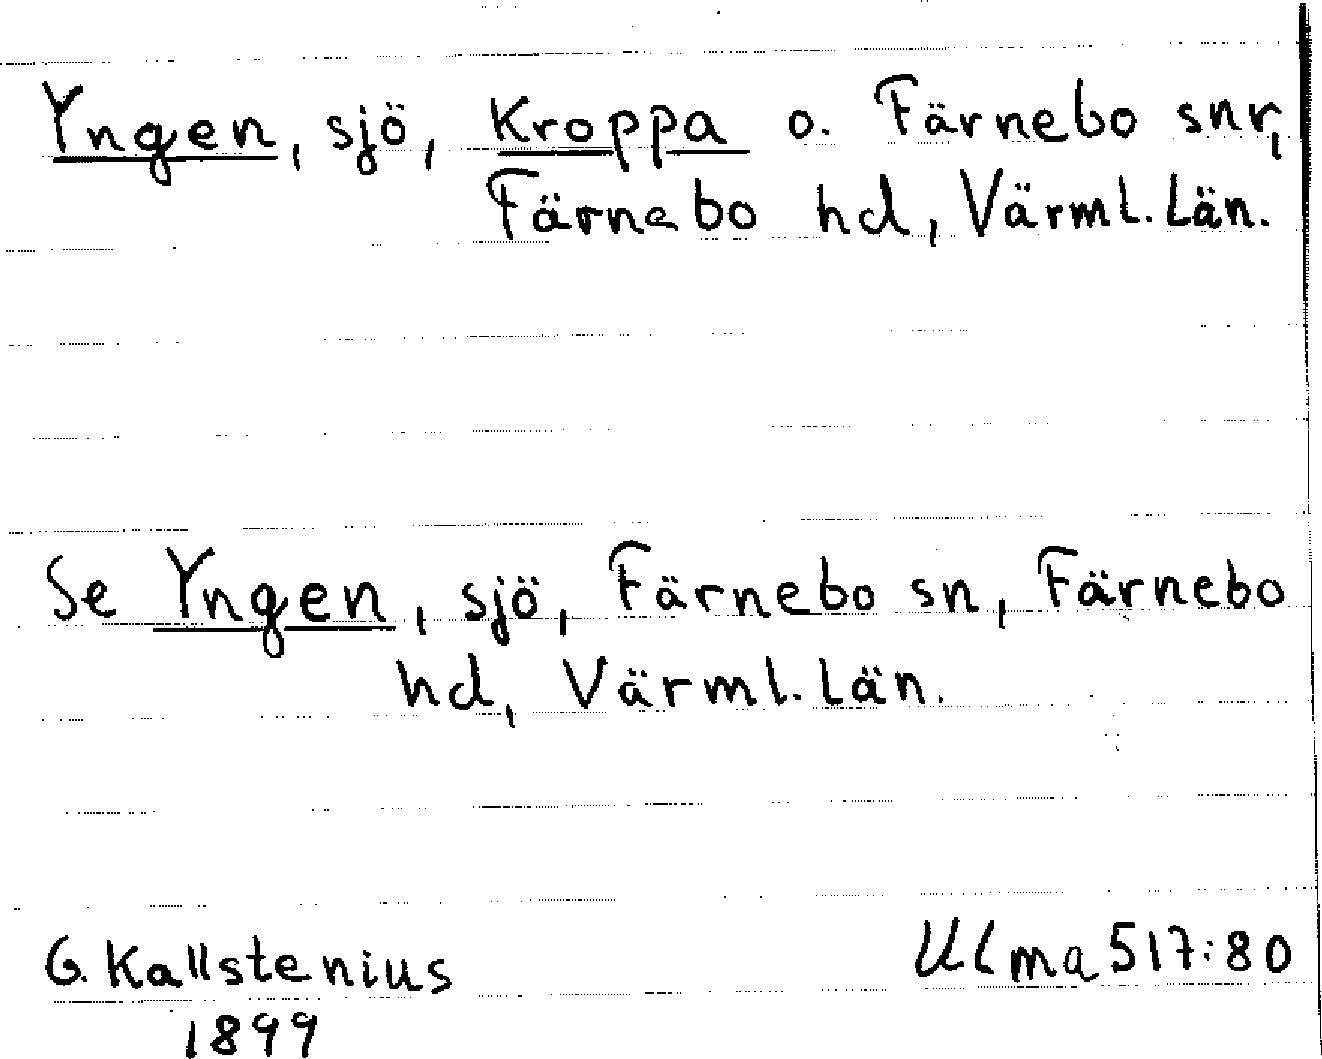 Yngen, sjö, Kroppa o. Färnebo snr,
Färnebo hd, Värml. län.
Se Yngen, sjö, Färnebo sn, Färnebo
hd, Värml. län.
G. Kallstenius
1899
Ulma 517:80